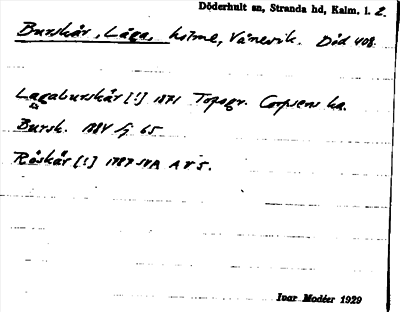 Döderhult sn, Stranda hd, Kalm. l. 2.
Burskår, Låga, holme, Vånevik. Död 408.
Lagaburskår [!] 1871 Topogr. Corpsens ka.
Bursk. 1884 fj 65
Råskår [!] 1787 SVA AVS.
Ivar Modéer 1929